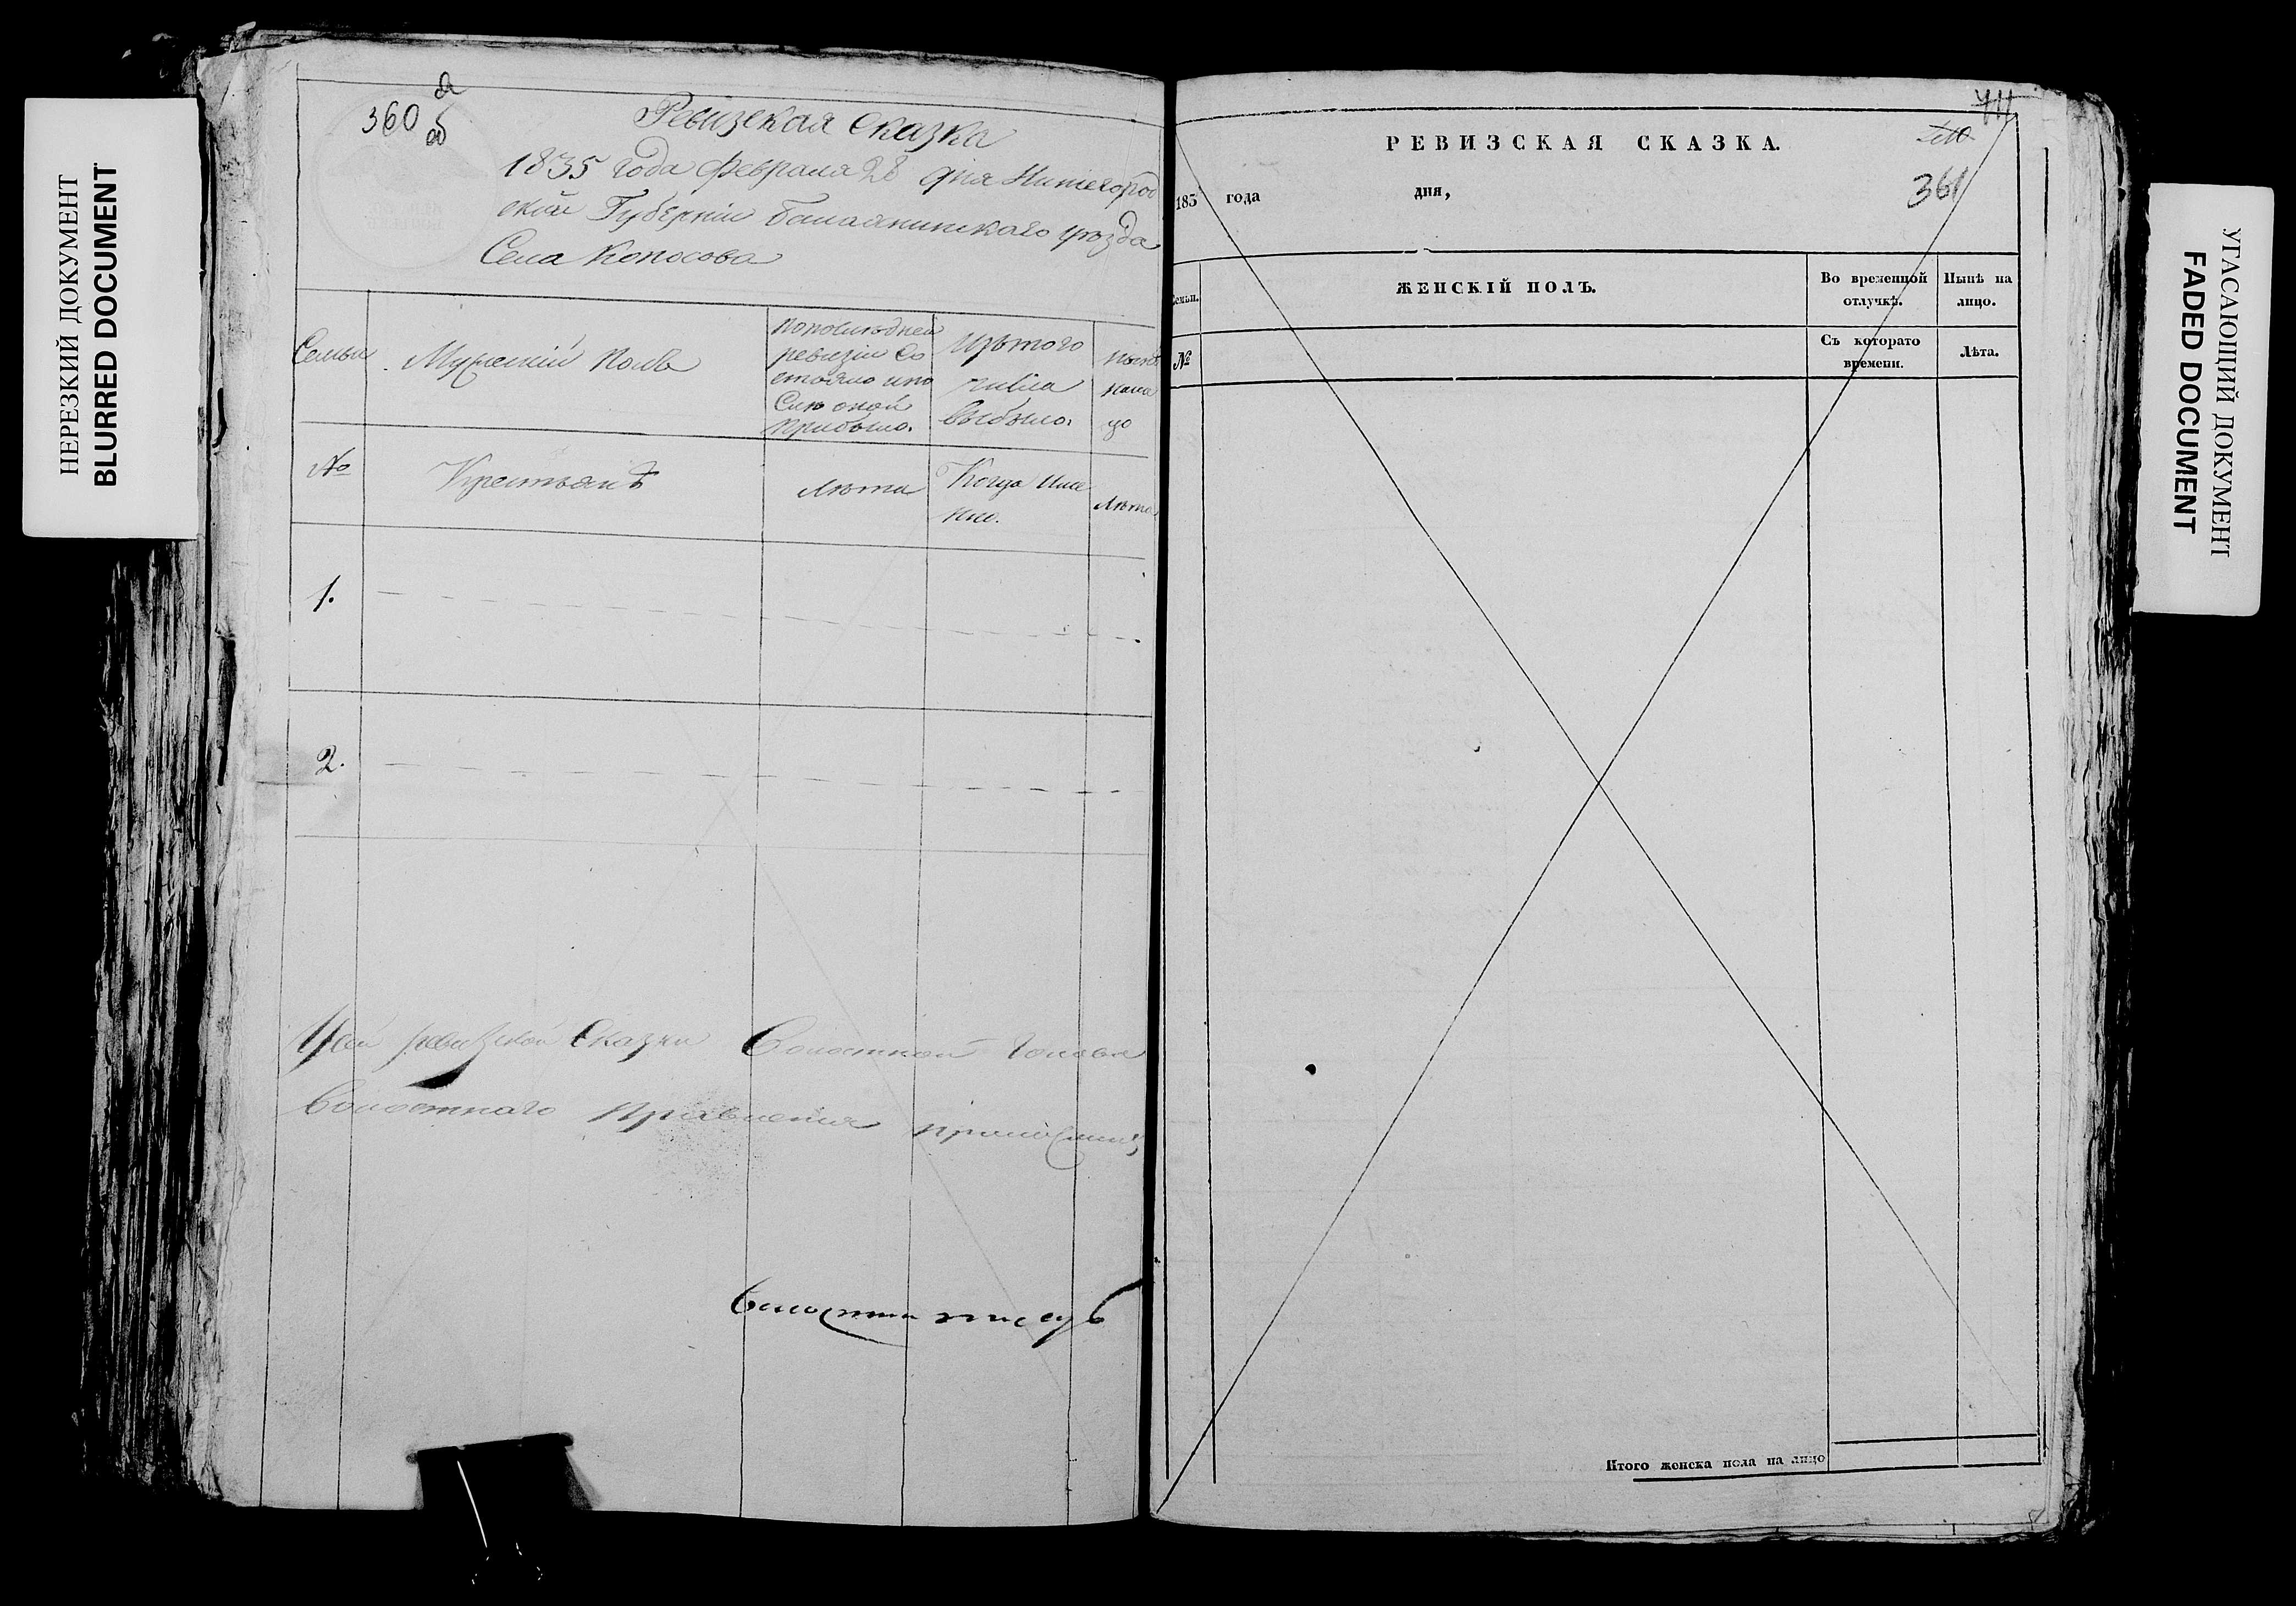 НЕРЕЗКИЙ ДОКУМЕНТ
BLURRED DOCUMENT
360 а
об
Ревизская сказка
1835 года февраля 28 дня Нижегород
ской Губерніи Балахнинскаго уезда
Села Копосова
Семьи
Мужескій полъ
По последней
ревизіи со
стояло и по
сле оной
прибыло.
Изъ того
числа
выбыло.
Ныне
на ли
цо
№
Крестьянъ
Лета
Когда име
нно.
Лета
1.
2.
ревизской Сказки Волостной Голова
Волостнаго Правления
РЕВИЗСКАЯ СКАЗКА.
361
183 года дня,
Семьи.
ЖЕНСКІЙ ПОЛЪ.
Во временной
отлучкѣ.
Нынѣ на
лицо.
№
Съ котораго
времени.
Лѣта.
Итого женска пола на лицо
УГАСАЮЩИЙ ДОКУМЕНТ
FADED DOCUMENT